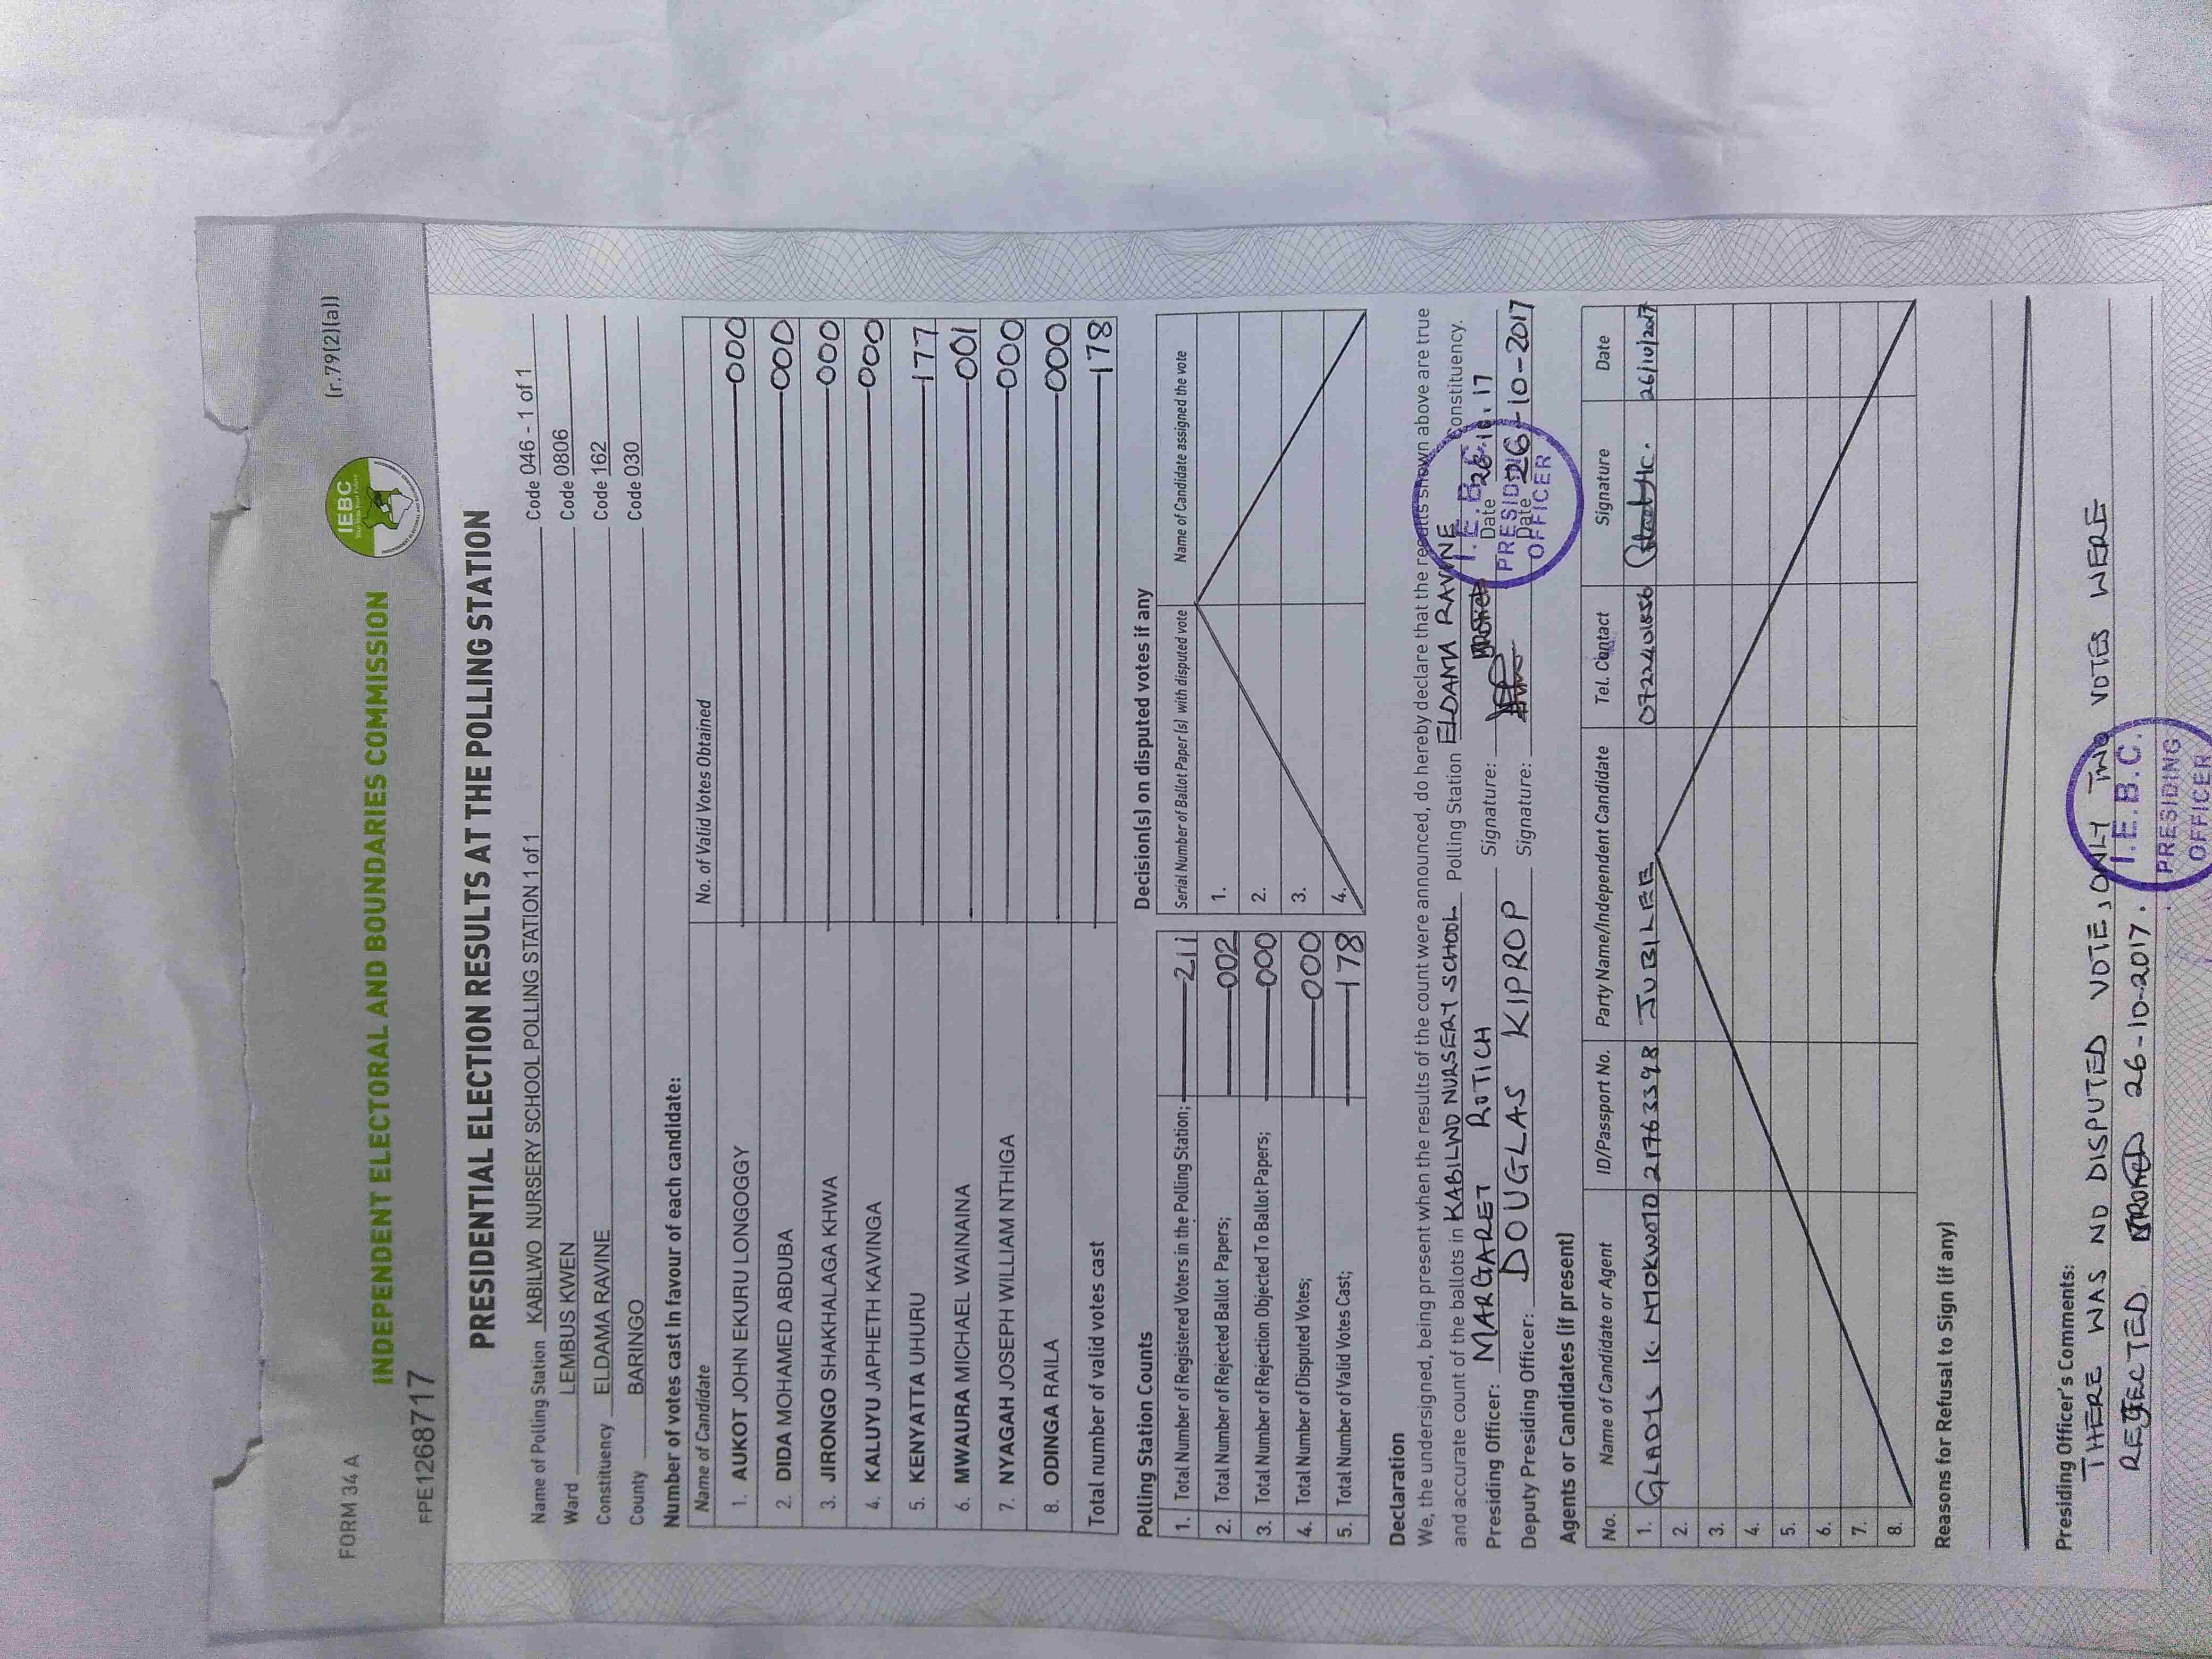 FORM 34 A
(r.79(2)(a))
IEBC
INDEPENDENT ELECTORAL AND BOUNDARIES COMMISSION
FPE1268717
PRESIDENTIAL ELECTION RESULTS AT THE POLLING STATION
Name of Polling Station KABILWO NURSERY SCHOOL POLLING STATION 1 of 1 Code 046 - 1 of 1
Ward LEMBUS KWEN Code 0806
Constituency ELDAMA RAVINE Code 162
County BARINGO Code 030
Number of votes cast in favour of each candidate:
Name of Candidate No. of Valid Votes Obtained
1. AUKOT JOHN EKURU LONGOGGY 000
2. DIDA MOHAMED ABDUBA 000
3. JIRONGO SHAKHALAGA KHWA 000
4. KALUYU JAPHETH KAVINGA 000
5. KENYATTA UHURU 177
6. MWAURA MICHAEL WAINAINA 001
7. NYAGAH JOSEPH WILLIAM NTHIGA 000
8. ODINGA RAILA 000
Total number of valid votes cast 178
Polling Station Counts
1. Total Number of Registered Voters in the Polling Station; 211
2. Total Number of Rejected Ballot Papers; 002
3. Total Number of Rejection Objected To Ballot Papers; 000
4. Total Number of Disputed Votes; 000
5. Total Number of Valid Votes Cast; 178
Decision(s) on disputed votes if any
Serial Number of Ballot Paper (s) with disputed vote Name of Candidate assigned the vote
1.
2.
3.
4.
Declaration
We, the undersigned, being present when the results of the count were announced, do hereby declare that the results shown above are true
and accurate count of the ballots in KABILWO NURSERY SCHOOL Polling Station ELDAMA RAVINE Constituency.
Presiding Officer: MARGARET ROTICH Signature: Date 26.10.17
Deputy Presiding Officer: DOUGLAS KIPROP Signature: Date 26-10-2017
I.E.B.C.
PRESIDING
OFFICER
Agents or Candidates (if present)
No. Name of Candidate or Agent ID/Passport No. Party Name/Independent Candidate Tel. Contact Signature Date
1. GLADYS K. 21763398 JUBILEE 26/10/2017
2.
3.
4.
5.
6.
7.
8.
Reasons for Refusal to Sign (if any)
Presiding Officer's Comments:
THERE WAS NO DISPUTED VOTE, ONLY TWO VOTES WERE
REJECTED 26-10-2017.
I.E.B.C.
PRESIDING
OFFICER